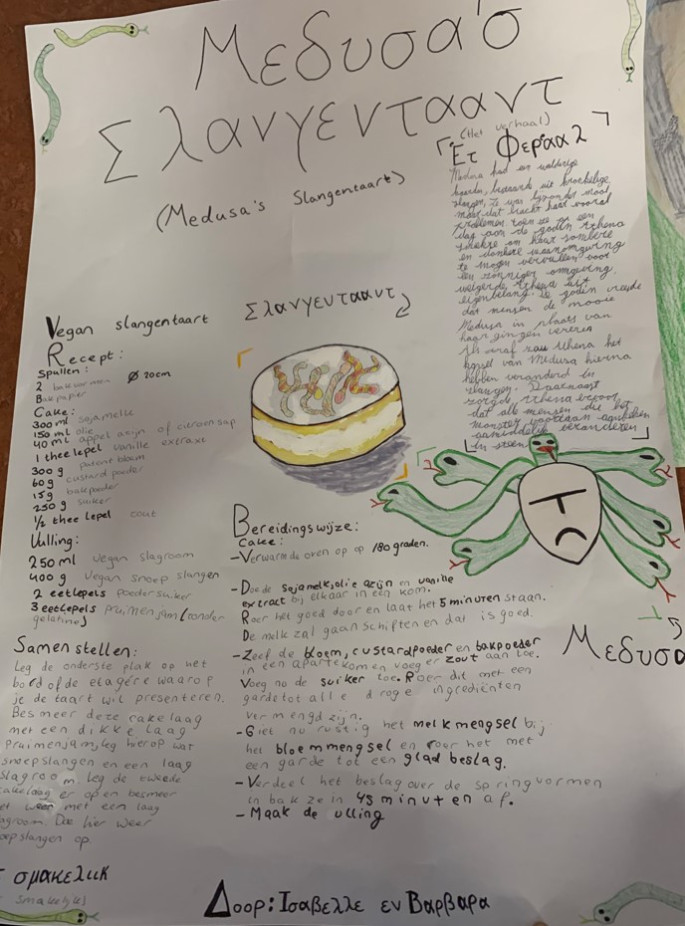 Μεδυσα'σ
Σλανγενταаντ
(Medusa's Slangentaart)
(Het verhaal)
Ετ Φερ'ααλ
Medusa had en
haarden, bestaande uit
slangen. Ze was bijzonder mooi
maar dat bracht heel vooral
problemen. toen ze op een
dag aan de godin Athena
om haar sombere
en donkere woonomgeving
te mogen verruilen voor
een zonniger omgeving,
weigerde Athena uit
eigenbelang. De godin vreesde
dat mensen de mooie
Medusa in plaats van
haar gingen vereren
Als straf zou Athena het
van Medusa hierna
hebben veranderd in
slangen. Daarnaast
zorgde Athena ervoor
dat alle mensen die het
monster voortaan aankeken
onmiddelijk veranderden
in steen
Σλανγενταаντ
Vegan slangentaart
Recept:
Spullen:
2 bakvormen Ø 20cm
Bakpapier
Cake:
300 ml sojamelk
150 ml olie
40 ml appel azijn of citroensap
1 thee lepel vanille extract
300 g patent bloem
60 g custard poeder
15 g bakpoeder
250 g suiker
1/2 thee lepel zout
Vulling:
250 ml vegan slagroom
400 g vegan snoep slangen
2 eetlepels poedersuiker
3 eetlepels pruimenjam (zonder
gelatine)
Samenstellen:
Leg de onderste plak op het
bord of de etagère waarop
je de taart wil presenteren.
Besmeer deze cakelaag
met een dikke laag
pruimenjam, leg hierop wat
snoepslangen en een laag
slagroom. Leg de tweede
cakelaag er op en besmeer
weer met een laag
Doe hier weer
op
σμακελικ
Smakelijk)
Bereidingswijze:
Cake:
-Verwarm de oven op op 180 graden.
-Doe de sojamelk, olie azijn en vanille
extract bij elkaar in een kom.
Roer het goed door en laat het 5 minuten staan.
De melk zal gaan schiften en dat is goed.
-Zeef de bloem, custardpoeder en bakpoeder
in een aparte kom en voeg er zout aan toe.
Voeg nu de suiker toe. Roer dit met een
garde tot alle droge ingrediënten
vermengd zijn.
-Giet nu rustig het melkmengsel bij
het bloemmengsel en roer het met
een garde tot een glad beslag.
-Verdeel het beslag over de springvormen
en bak ze in 45 minuten af.
-Maak de ulling
Μεδυσα
Δοορ: Ισαβελλε εν Βαρβαρα